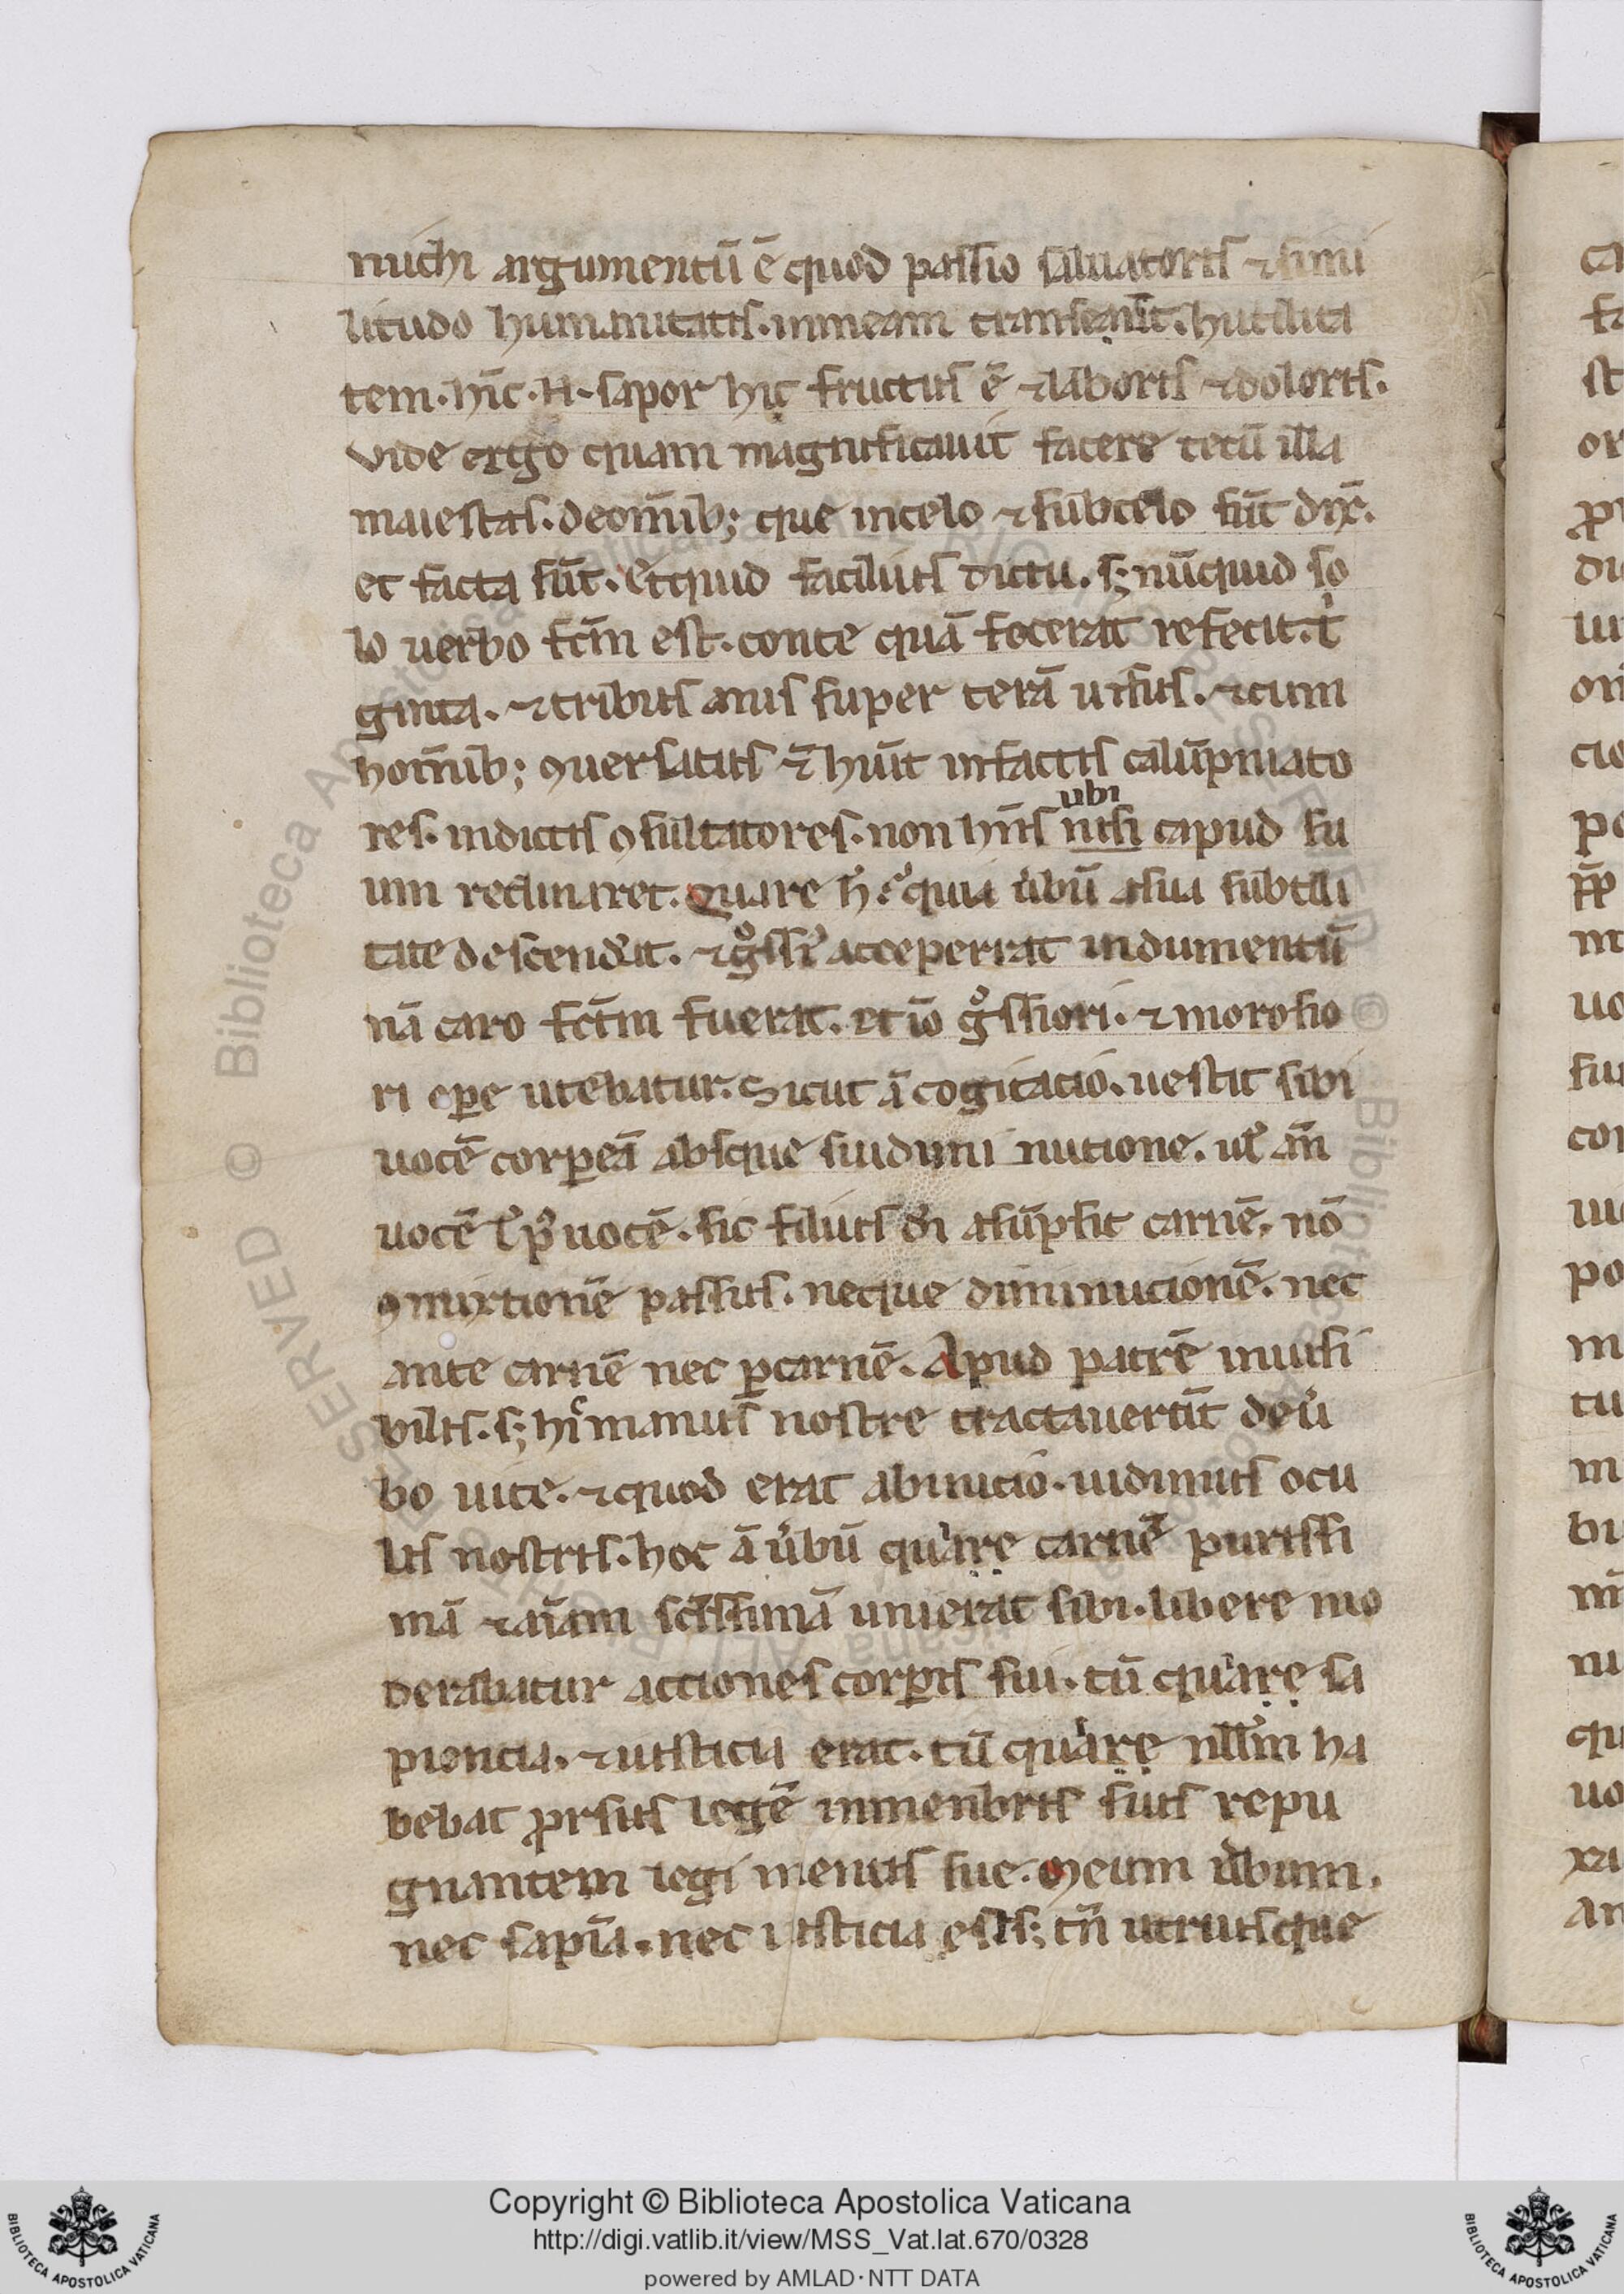 michi argumentū ē quod passio saluatoris ⁊ simi
litudo humanitatis. inmeam transeaūt. hutilita
tem. hic. N. sapor hic fructus ē ⁊ laboris ⁊ doloris.
vide ergo quam magnificauit facere tecū illa
maiestas. deom̄ib; que incelo ⁊ subcelo sūt dix̄.
et facta sūt. Et quid facilius dictu. s; nūquid so
lo uerbo fc̄m est. cum te quā fecerat refecit. t͛
ginta. ⁊ tribus anis super terā uisus. ⁊ cum
hom̄ib; ꝯuersatus ē hūit infactis calūpniato
res. indictis ꝯsultatores. non hn̄s nisi ubi capud su
um reclinaret. Quare h̄. quia ūbū asua subtili
tate descend̄at. ⁊ gͦssi͛ acceperrat indumentū
nā caro fc̄m fuerat. et iō gͦssiori. ⁊ morosio
ri oꝑe utebatur. Sicut ā cogitacio. uestit sibi
uocē corꝑeā absque sui dimi nutione. ul̄ an̄
uocē l̄ pꝰ uocē. sic filius dī asūpsit carnē. nō
ꝯmixtionē passus. neque diminucionē. nec
ante carnē nec pꝰ carnē. Apud patrē inuisi
bilis. s; hīc manus nostre tractauerūt deu͛
bo uite. ⁊ quod erat abinicio. uidimus ocu
lis nostris. hoc ā u͛bū quare carnē purissi
mā ⁊ aīam sc̄issimā unierat sibi. libere mo
derabatur acciones corꝑis sui. tū quare sa
piencia. ⁊ iusticia erat. tū quare nll̄am ha
bebat ꝓrsus legē inmenbris suis repu
gnantem legi mentis sue. Meum u͛bum.
nec sapīa. nec iusticia est s; tn̄ utriusque
Copyright © Biblioteca Apostolica Vaticana
http://digi.vatlib.it/view/MSS_Vat.lat.670/0328
powered by AMLAD·NTT DATA